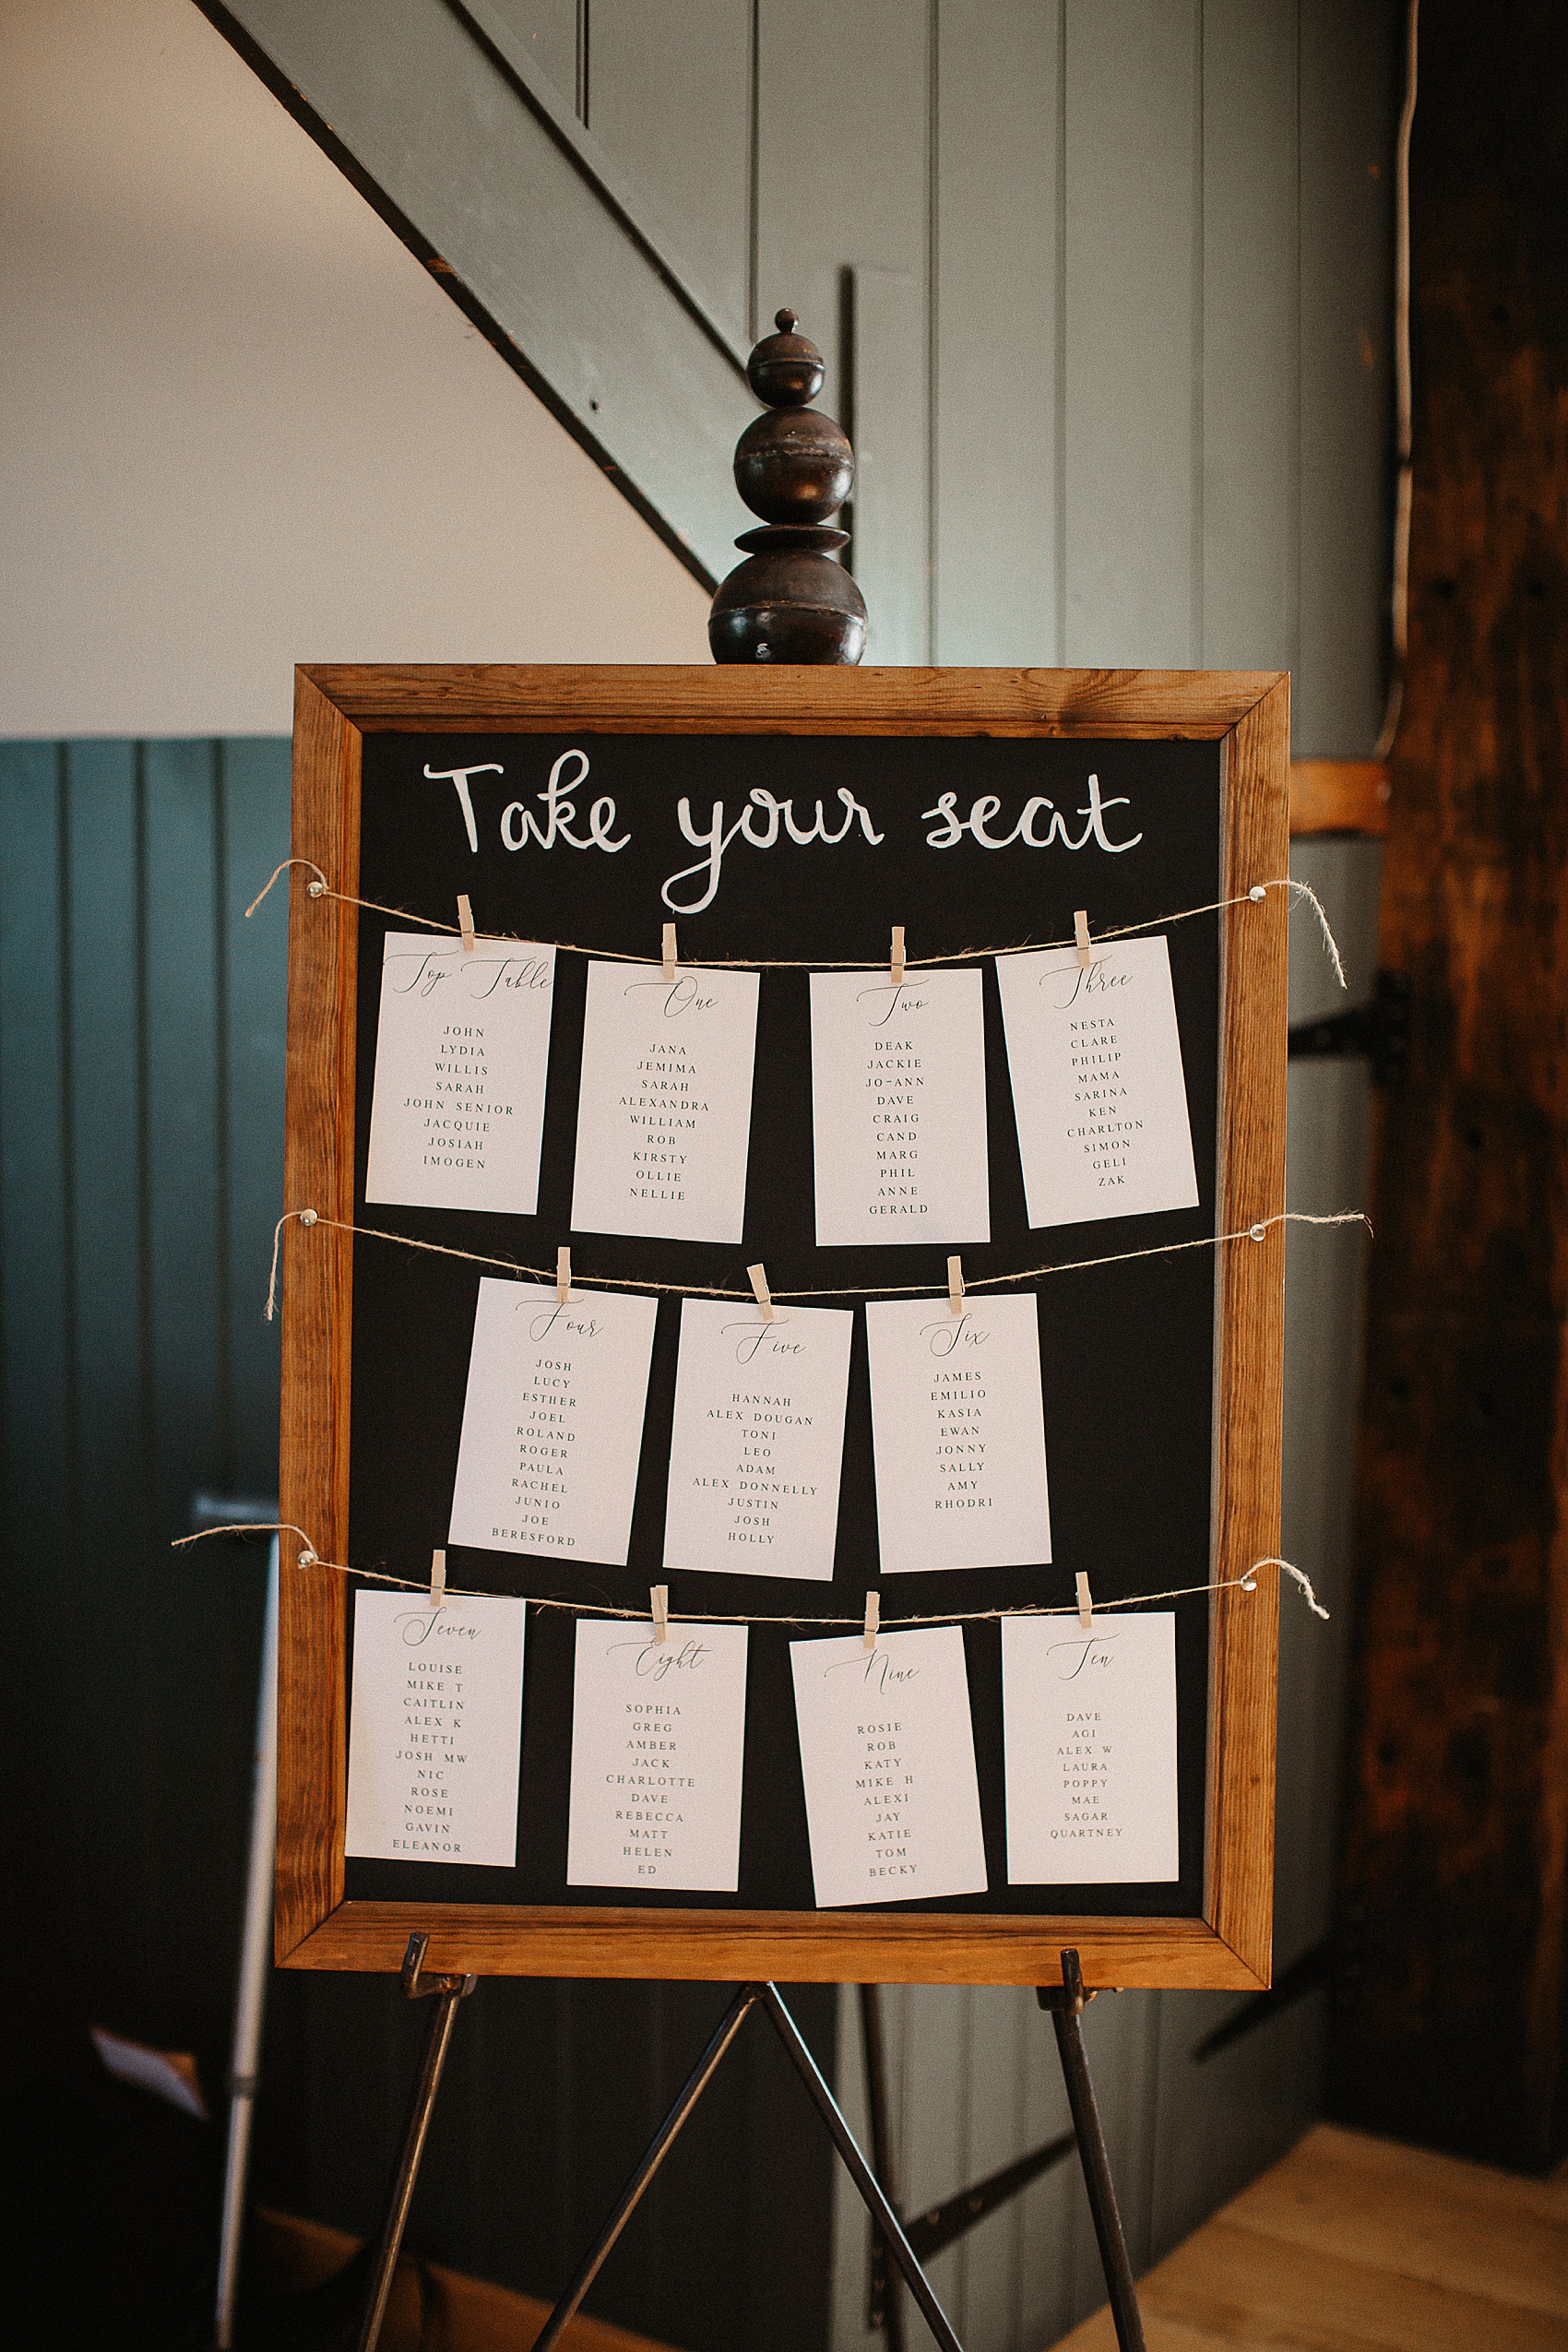 Take your seat
Top Table
JOHN
LYDIA
WILLIS
SARAH
JOHN SENIOR
JACQUIE
JOSIAH
IMOGEN
One
JANA
JEMIMA
SARAH
ALEXANDRA
WILLIAM
ROB
KIRSTY
OLLIE
NELLIE
Two
DEAK
JACKIE
JO-ANN
DAVE
CRAIG
CAND
MARG
PHIL
ANNE
GERALD
Three
NESTA
CLARE
PHILIP
MAMA
SARINA
KEN
CHARLTON
SIMON
GELI
ZAK
Four
JOSH
LUCY
ESTHER
JOEL
ROLAND
ROGER
PAULA
RACHEL
JUNIO
JOE
BERESFORD
Five
HANNAH
ALEX DOUGAN
TONI
LEO
ADAM
ALEX DONNELLY
JUSTIN
JOSH
HOLLY
Six
JAMES
EMILIO
KASIA
EWAN
JONNY
SALLY
AMY
RHODRI
Seven
LOUISE
MIKE T
CAITLIN
ALEX K
HETTI
JOSH MW
NIC
ROSE
NOEMI
GAVIN
ELEANOR
Eight
SOPHIA
GREG
AMBER
JACK
CHARLOTTE
DAVE
REBECCA
MATT
HELEN
ED
Nine
ROSIE
ROB
KATY
MIKE H
ALEXI
JAY
KATIE
TOM
BECKY
Ten
DAVE
AGI
ALEX W
LAURA
POPPY
MAE
SAGAR
QUARTNEY